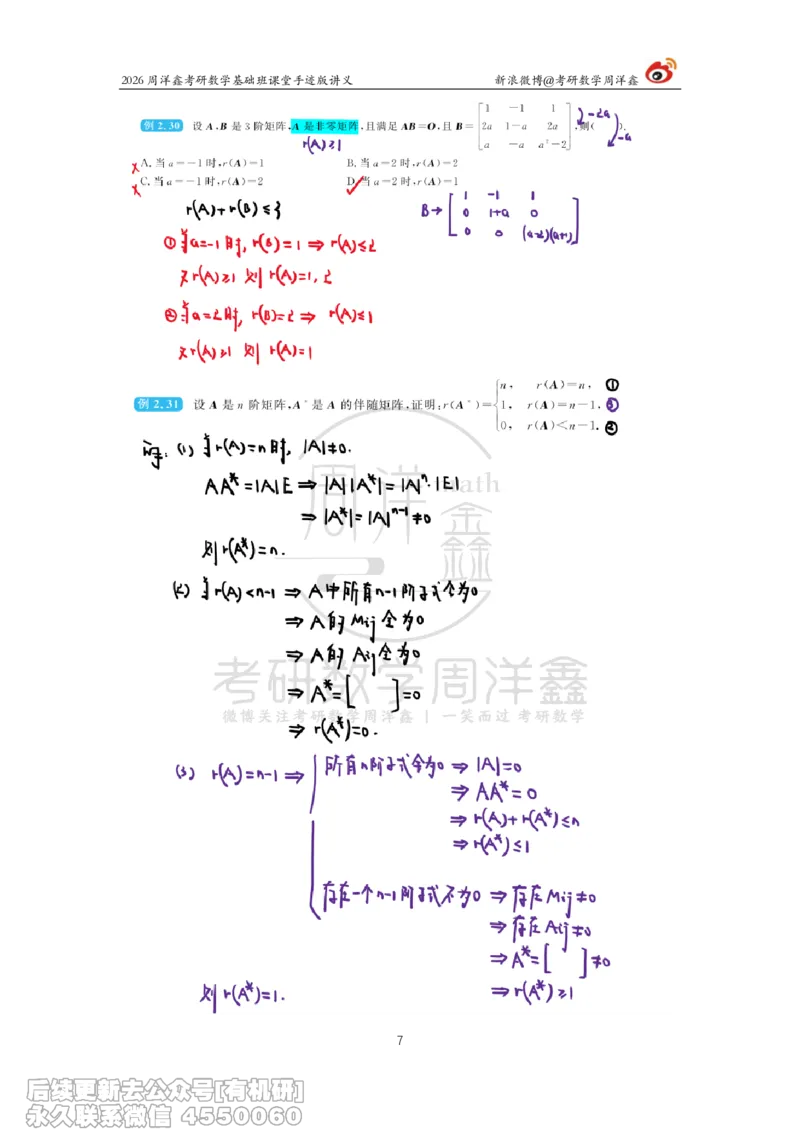 2026 周洋鑫考研数学基础班课堂手迹版讲义 新浪微博@考研数学周洋鑫
例 2.30 设 A,B 是 3 阶矩阵,A 是非零矩阵,且满足 AB=O,且 B=[1 -1 1; 2a 1-a 2a; a -a a²-2],则( ).
-2a
-a
r(A)≥1
A. 当 a=-1 时,r(A)=1 B. 当 a=2 时,r(A)=2
C. 当 a=-1 时,r(A)=2 D. 当 a=2 时,r(A)=1
r(A)+r(B)≤3
B→[1 -1 1; 0 1+a 0; 0 0 (a-2)(a+1)]
①当a=-1时, r(B)=1 ⇒ r(A)≤2
又r(A)≥1 则 r(A)=1,2
②当a=2时, r(B)=2 ⇒ r(A)≤1
又r(A)≥1 则 r(A)=1
例 2.31 设 A 是 n 阶矩阵,A* 是 A 的伴随矩阵,证明:r(A*)={n, r(A)=n, ①
1, r(A)=n-1, ③
0, r(A)<n-1. ②
证: (1) 当r(A)=n时, |A|≠0.
AA*=|A|E ⇒ |A||A*|=|A|ⁿ·|E|
⇒ |A*|=|A|ⁿ⁻¹≠0
则 r(A*)=n.
(2) 当r(A)<n-1 ⇒ A中所有n-1阶子式全为0
⇒ A的 Mij 全为0
⇒ A的 Aij 全为0
⇒ A*=[ ]=0
⇒ r(A*)=0.
(3) r(A)=n-1 ⇒
所有n阶子式全为0 ⇒ |A|=0
⇒ AA*=0
⇒ r(A)+r(A*)≤n
⇒ r(A*)≤1
存在一个n-1阶子式不为0 ⇒ 存在 Mij≠0
⇒ 存在 Aij≠0
⇒ A*=[ ]≠0
⇒ r(A*)≥1
则 r(A*)=1.
周洋鑫 math
考研数学周洋鑫
微博关注考研数学周洋鑫 | 一笑而过 考研数学
7
后续更新去公众号[有机研]
永久联系微信 4550060